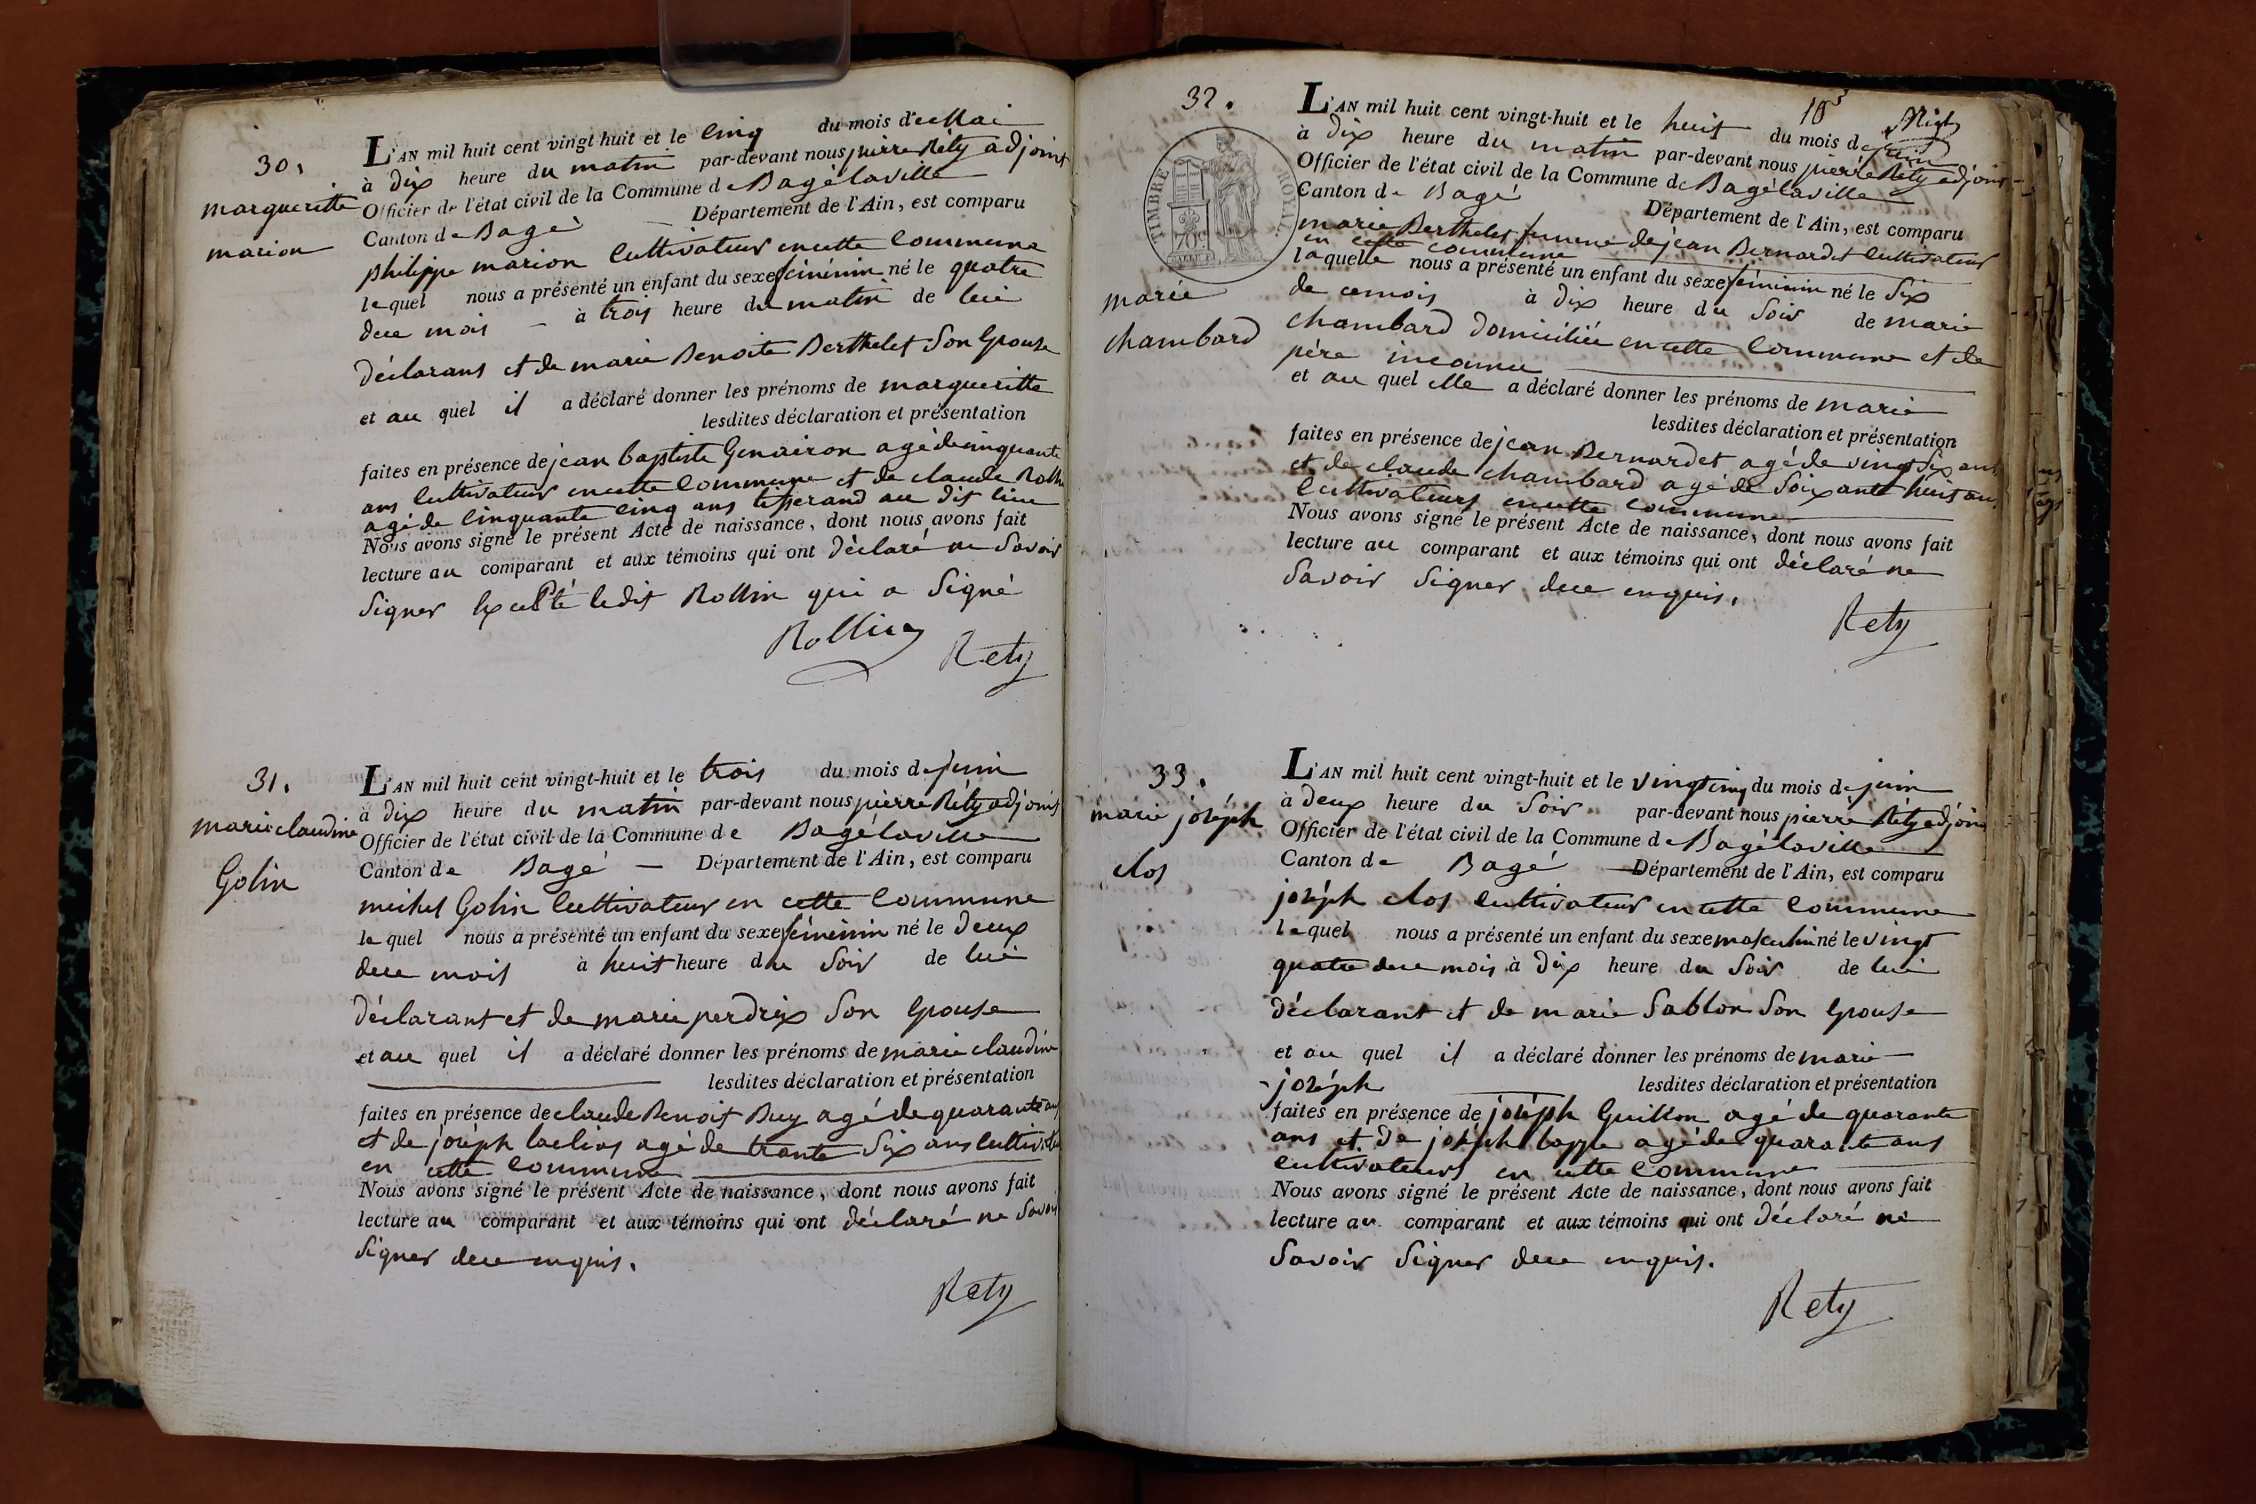 30.
margueritte
marion
L'AN mil huit cent vingt-huit et le Cinq du mois de Mai
à dix heure du matin par-devant nous pierre Réty adjoint
Officier de l'état civil de la Commune de Bagélaville
Canton de Bagé Département de l'Ain, est comparu
philippe marion Cultivateur en cette Commune
lequel nous a présenté un enfant du sexe féminin né le quatre
de ce mois à trois heure du matin de lui
déclarans et de marie Benoite Berthelet son Epouse
et au quel il a déclaré donner les prénoms de margueritte
lesdites déclaration et présentation
faites en présence de jean baptiste agé de cinquante
ans Cultivateur en cette Commune et de claude Rollin
agé de Cinquante Cinq ans tisserand au dit lieu
Nous avons signé le présent Acte de naissance, dont nous avons fait
lecture au comparant et aux témoins qui ont déclaré ne Savoir
Signer Excepté ledit Rollin qui a Signé
Rollin
Rety
31.
marie claudine
Golin
L'AN mil huit cent vingt-huit et le trois du mois de juin
à dix heure du matin par-devant nous pierre Réty adjoint
Officier de l'état civil de la Commune de Bagélaville
Canton de Bagé Département de l'Ain, est comparu
michel Golin Cultivateur en cette Commune
lequel nous a présenté un enfant du sexe féminin né le Deux
de ce mois à huit heure du Soir de lui
déclarant et de marie perdrix Son Epouse
et au quel il a déclaré donner les prénoms de marie claudine
lesdites déclaration et présentation
faites en présence de claude Benoit Buy agé de quarante ans
et de joséph agé de trante Six ans Cultivateurs
en cette Commune
Nous avons signé le présent Acte de naissance, dont nous avons fait
lecture au comparant et aux témoins qui ont déclaré ne Savoir
Signer de ce enquis.
Rety
32.
TIMBRE ROYAL
70c
marie
chambard
L'AN mil huit cent vingt-huit et le huit du mois de juin
à dix heure du matin par-devant nous pierre Réty adjoint
Officier de l'état civil de la Commune de Bagélaville
Canton de Bagé Département de l'Ain, est comparu
marie Berthelet femme de jean Bernardet Cultivateur
en cette commune
laquelle nous a présenté un enfant du sexe féminin né le Six
de ce mois à dix heure du Soir de marie
chambard domiciliée en cette Commune et de
père inconnu
et au quel elle a déclaré donner les prénoms de marie
lesdites déclaration et présentation
faites en présence de jean Bernardet agé de vingt Six ans
et de claude chambard agé de Soixante huit ans
Cultivateurs en cette Commune
Nous avons signé le présent Acte de naissance, dont nous avons fait
lecture au comparant et aux témoins qui ont déclaré ne
Savoir Signer de ce enquis.
Rety
33.
marie joséph
clos
L'AN mil huit cent vingt-huit et le vingt cinq du mois de juin
à deux heure du Soir par-devant nous pierre Réty adjoint
Officier de l'état civil de la Commune de Bagélaville
Canton de Bagé Département de l'Ain, est comparu
joséph clos Cultivateur en cette Commune
lequel nous a présenté un enfant du sexe masculin né le vingt
quatre de ce mois à dix heure du Soir de lui
déclarant et de marie Sablon Son Epouse
et au quel il a déclaré donner les prénoms de marie
joséph lesdites déclaration et présentation
faites en présence de joséph Guillon agé de quarante
ans et de joséph agé de quarante ans
Cultivateurs en cette Commune
Nous avons signé le présent Acte de naissance, dont nous avons fait
lecture au comparant et aux témoins qui ont déclaré ne
Savoir Signer de ce enquis.
Rety